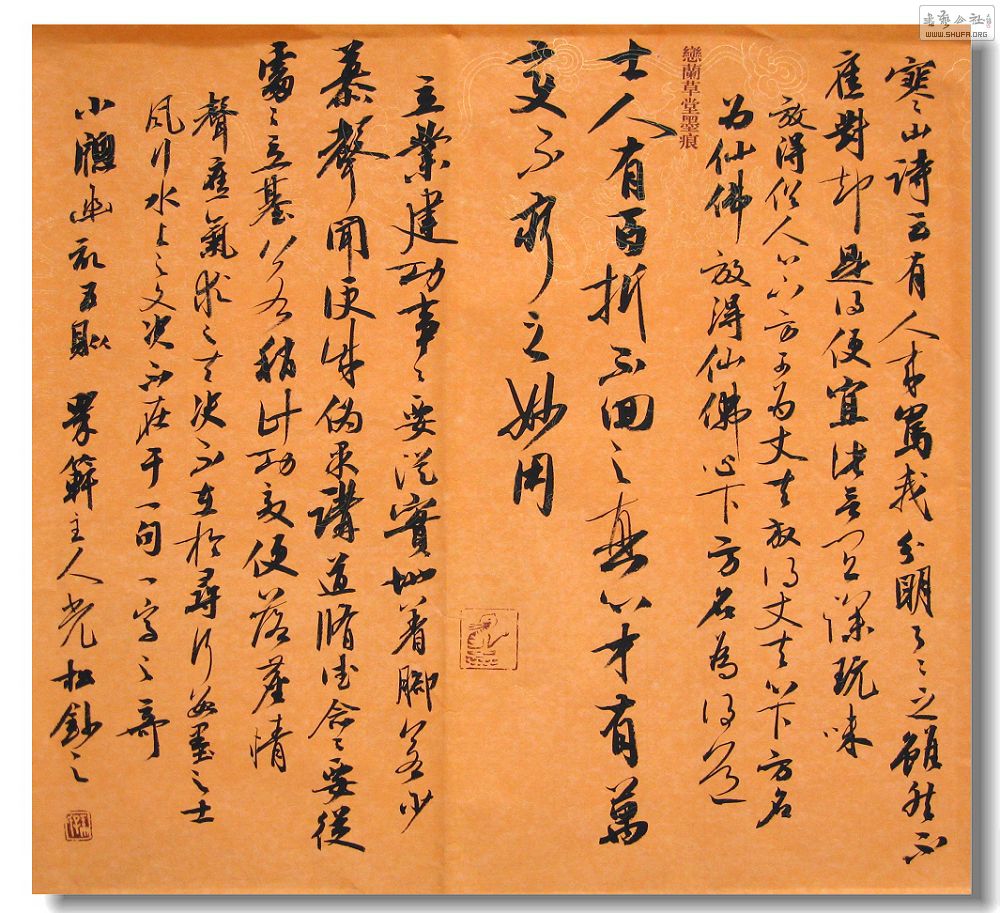 書藝公社
WWW.SHUFA.ORG
寒山诗云有人来罵我分明了了知雖然不
應對却是得便宜此言宜深玩味
放得俗人心下方可为丈夫放得丈夫心下方名
为仙佛放得仙佛心下方名為得道
戀蘭草堂墨痕
士人有百折不回之真心才有萬
變不窮之妙用
立業建功事々要從實地着脚若少
慕聲聞便成偽果講道脩德念々要從
處々立基若稍計功效便落塵情
聲應氣求之夫决不在於尋行數墨之士
风行水上之文决不在于一句一字之奇
小牕幽記五則 主人光松鈔之